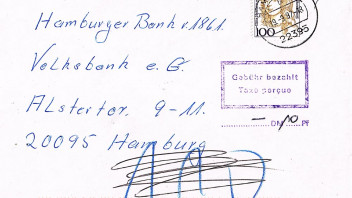 Hamburger Bank v. 1861.
Volksbank e. G.
Alstertor. 9-11.
20095 Hamburg
100
22395
Gebühr bezahlt
Taxe perçue
— DM/10 PF